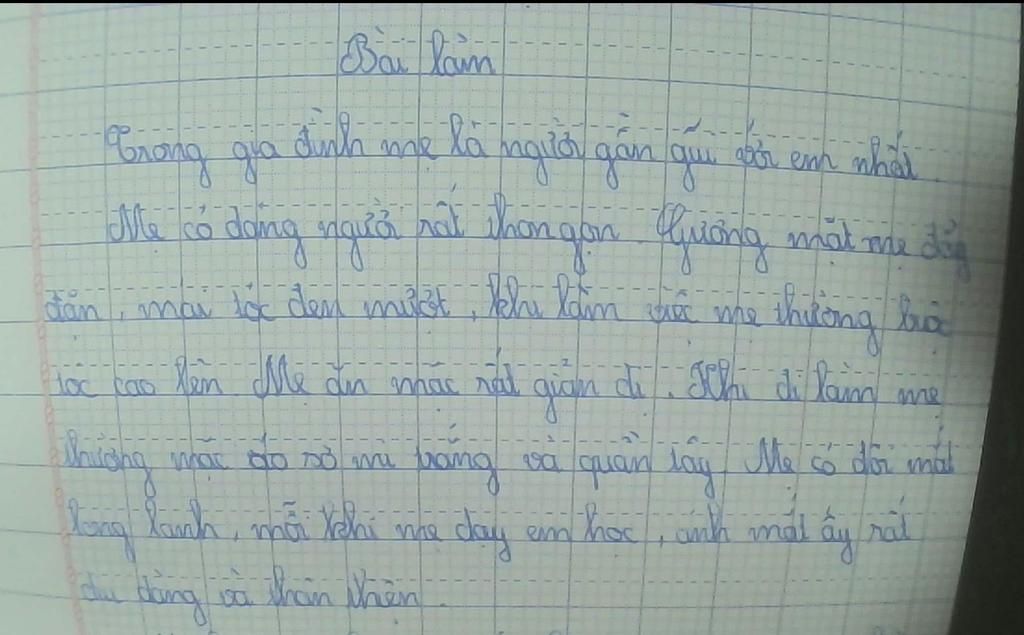 Bài làm
Trong gia đình mẹ là người gần gũi với em nhất.
Mẹ có dáng người rất thon gọn. Gương mặt mẹ đầy
đặn, mái tóc đen mượt, khi làm việc mẹ thường búi
tóc cao lên. Mẹ ăn mặc rất giản dị. Khi đi làm mẹ
thường mặc áo sơ mi trắng và quần tây. Mẹ có đôi mắt
long lanh, mỗi khi mẹ dạy em học, ánh mắt ấy rất
dịu dàng và thân thiện.